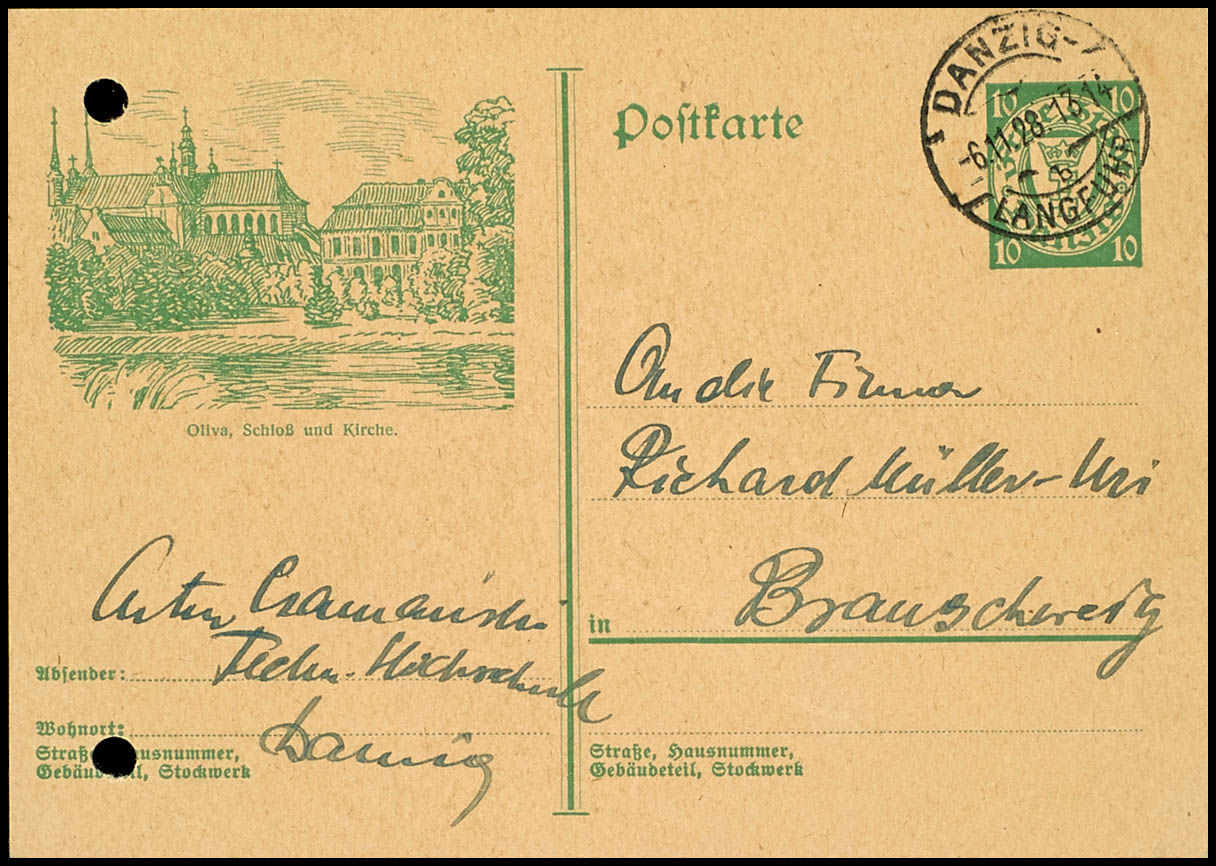 Postkarte
DANZIG-
-6.11.28.-13-14
LANGFUHR
10 10
10 10
Oliva, Schloß und Kirche.
An die Firma
Richard Müller-Uri
in Braunschweig
Techn. Hochschule
Absender:
Wohnort: Danzig
Straße, Hausnummer,
Gebäudeteil, Stockwerk
Straße, Hausnummer,
Gebäudeteil, Stockwerk